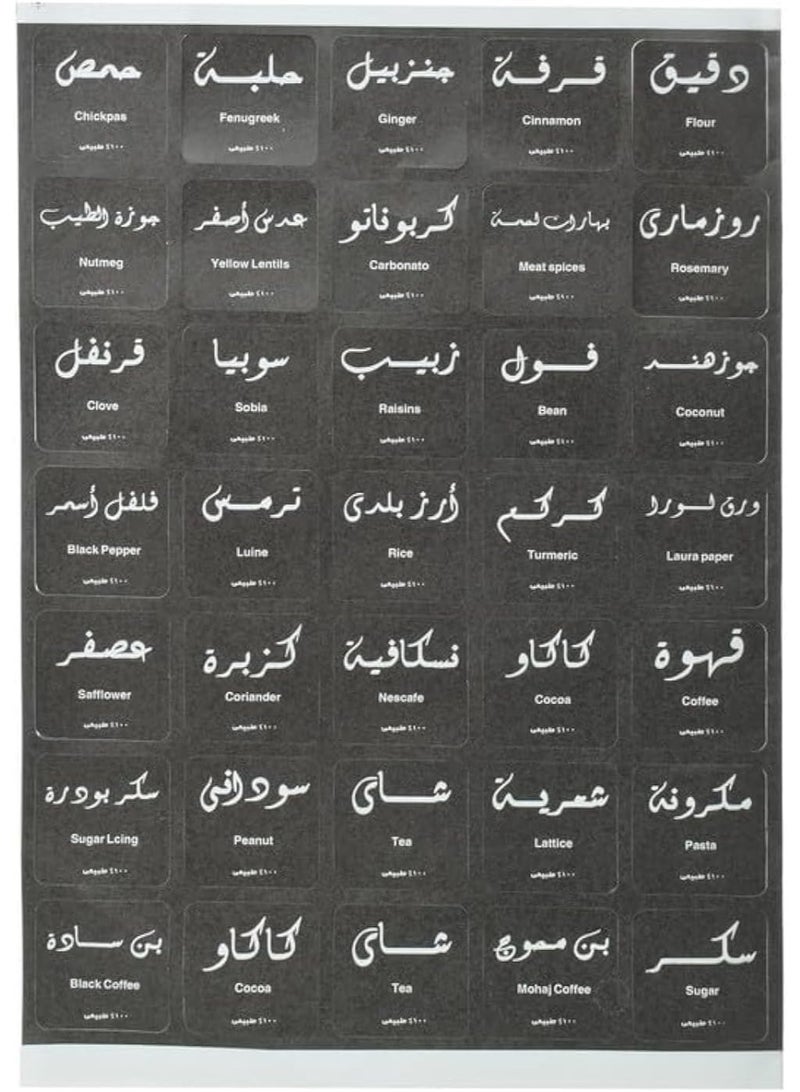 حمص
Chickpas
١٠٠٪ طبيعى
حلبة
Fenugreek
١٠٠٪ طبيعى
جنزبيل
Ginger
١٠٠٪ طبيعى
قرفة
Cinnamon
١٠٠٪ طبيعى
دقيق
Flour
١٠٠٪ طبيعى
جوزة الطيب
Nutmeg
١٠٠٪ طبيعى
عدس أصفر
Yellow Lentils
١٠٠٪ طبيعى
كربوناتو
Carbonato
١٠٠٪ طبيعى
بهارات لحمة
Meat spices
١٠٠٪ طبيعى
روزمارى
Rosemary
١٠٠٪ طبيعى
قرنفل
Clove
١٠٠٪ طبيعى
سوبيا
Sobia
١٠٠٪ طبيعى
زبيب
Raisins
١٠٠٪ طبيعى
فول
Bean
١٠٠٪ طبيعى
جوزهند
Coconut
١٠٠٪ طبيعى
فلفل أسمر
Black Pepper
١٠٠٪ طبيعى
ترمس
Luine
١٠٠٪ طبيعى
أرز بلدى
Rice
١٠٠٪ طبيعى
كركم
Turmeric
١٠٠٪ طبيعى
ورق لورا
Laura paper
١٠٠٪ طبيعى
عصفر
Safflower
١٠٠٪ طبيعى
كزبرة
Coriander
١٠٠٪ طبيعى
نسكافية
Nescafe
١٠٠٪ طبيعى
كاكاو
Cocoa
١٠٠٪ طبيعى
قهوة
Coffee
١٠٠٪ طبيعى
سكر بودرة
Sugar Lcing
١٠٠٪ طبيعى
سودانى
Peanut
١٠٠٪ طبيعى
شاى
Tea
١٠٠٪ طبيعى
شعرية
Lattice
١٠٠٪ طبيعى
مكرونة
Pasta
١٠٠٪ طبيعى
بن سادة
Black Coffee
١٠٠٪ طبيعى
كاكاو
Cocoa
١٠٠٪ طبيعى
شاى
Tea
١٠٠٪ طبيعى
بن محوج
Mohaj Coffee
١٠٠٪ طبيعى
سكر
Sugar
١٠٠٪ طبيعى